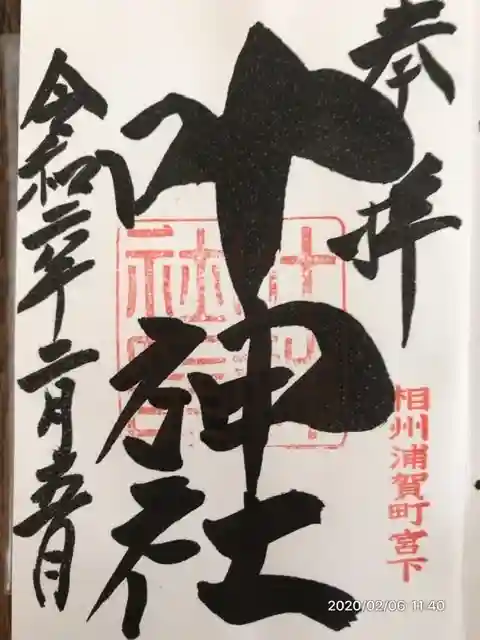 奉拝
相州浦賀町宮下
叶神社
令和二年二月日
2020/02/06 11:40